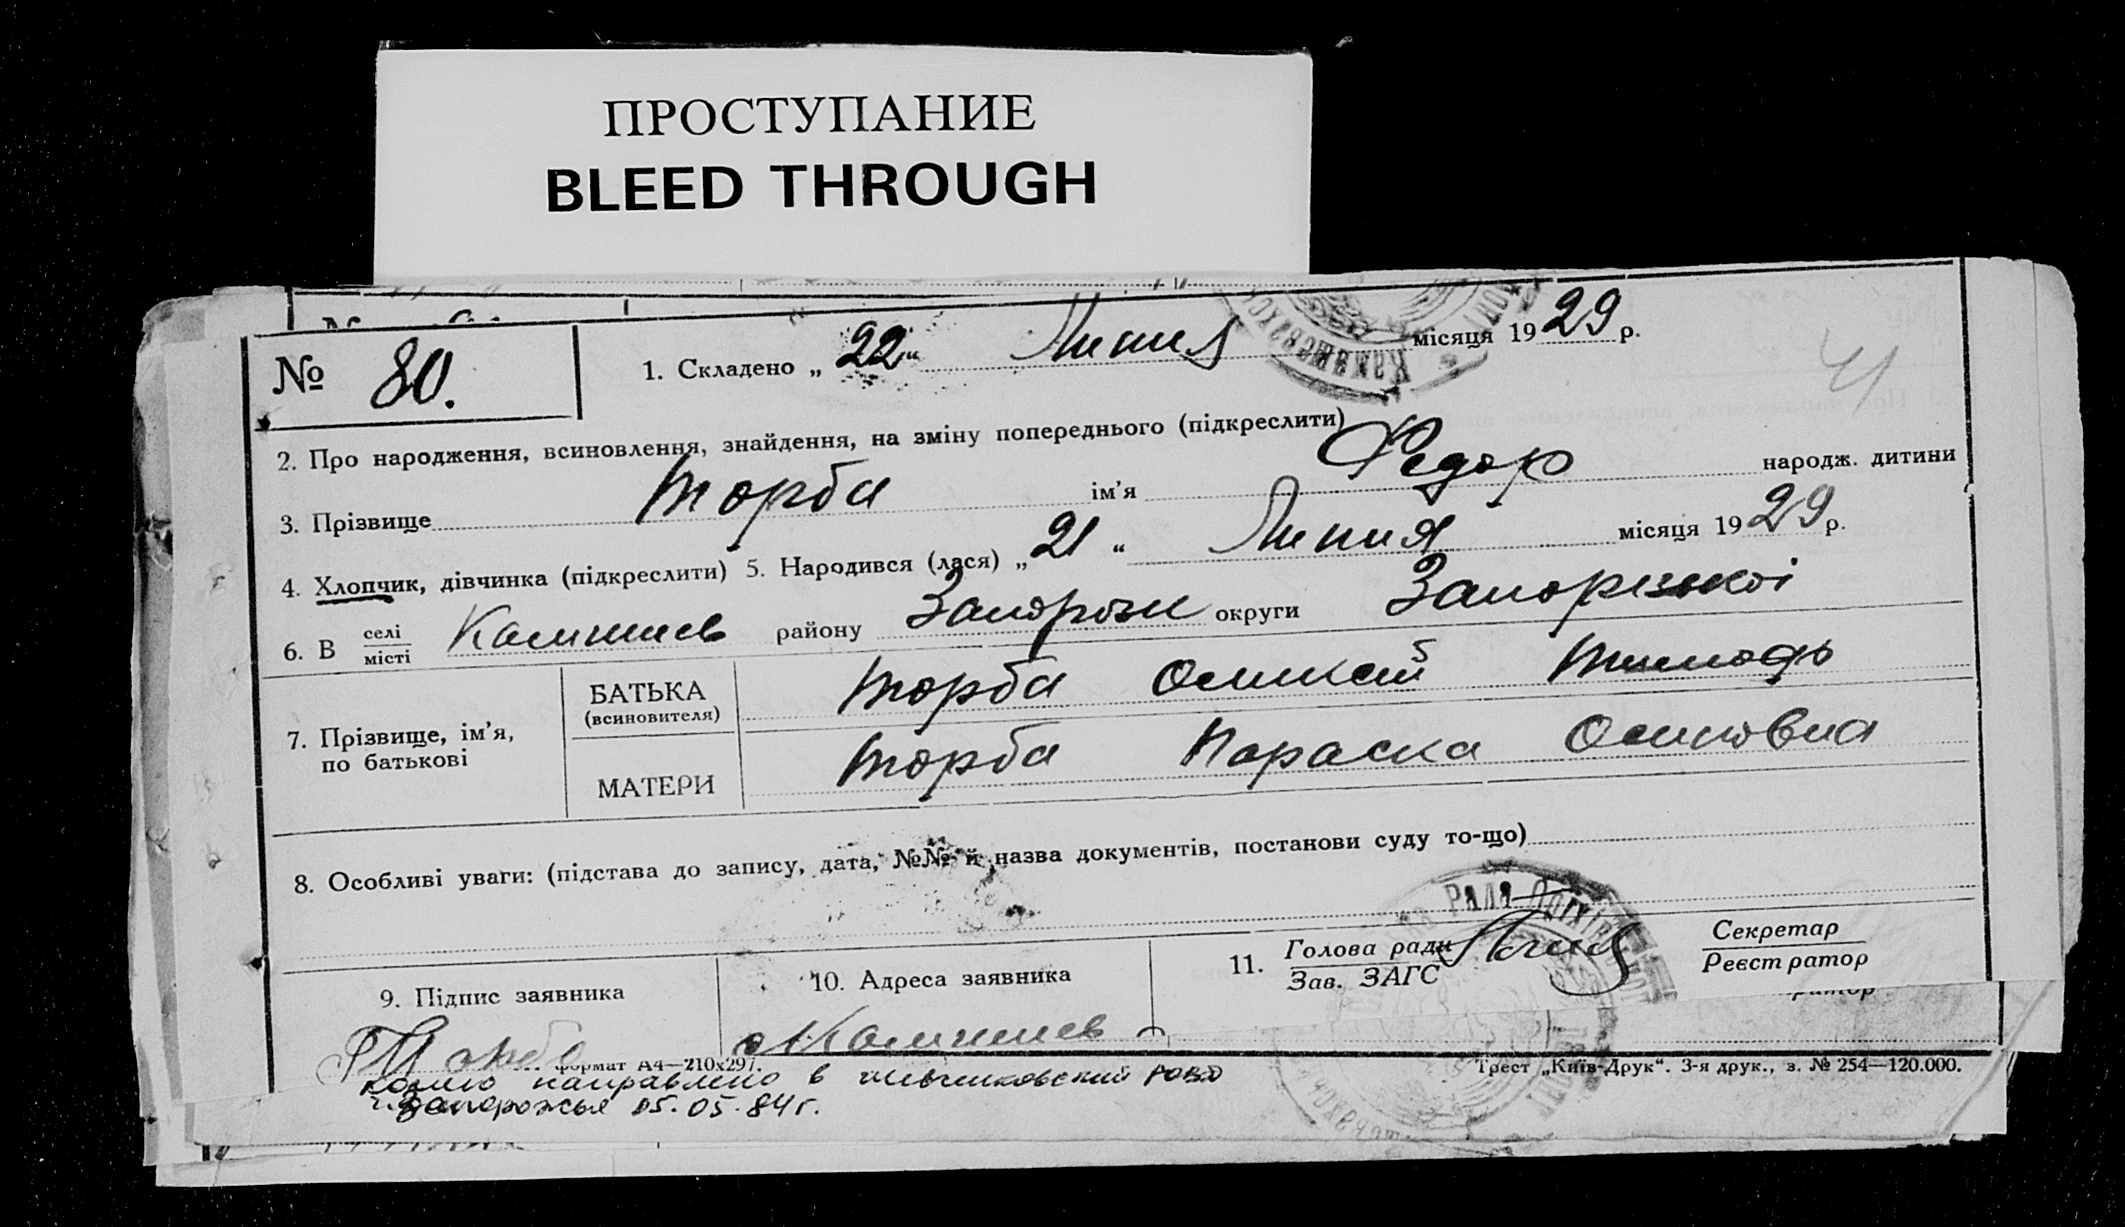 ПРОСТУПАНИЕ
BLEED THROUGH
№ 80.
1. Складено „ 22 “ Липня місяця 19 29 р.
41
2. Про народження, всиновлення, знайдення, на зміну попереднього (підкреслити)
3. Прізвище Торба ім'я Федор народж. дитини
4. Хлопчик, дівчинка (підкреслити) 5. Народився (лася) „ 21 “ Липня місяця 19 29 р.
6. В селі місті району Запорозьк округи Запорізькоі
7. Прізвище, ім'я, по батькові
БАТЬКА (всиновителя) Торба
МАТЕРИ Торба Параска Осиповна
8. Особливі уваги: (підстава до запису, дата, №№ й назва документів, постанови суду то-що)
9. Підпис заявника
10. Адреса заявника
11. Голова ради Зав. ЗАГС
Секретар Реєстратор
Торба
формат А4—210х297.
Трест „Київ-Друк“. 3-я друк., з. № 254—120.000.
копию направлено в РОВД
г. Запорожья 05.05.84 г.